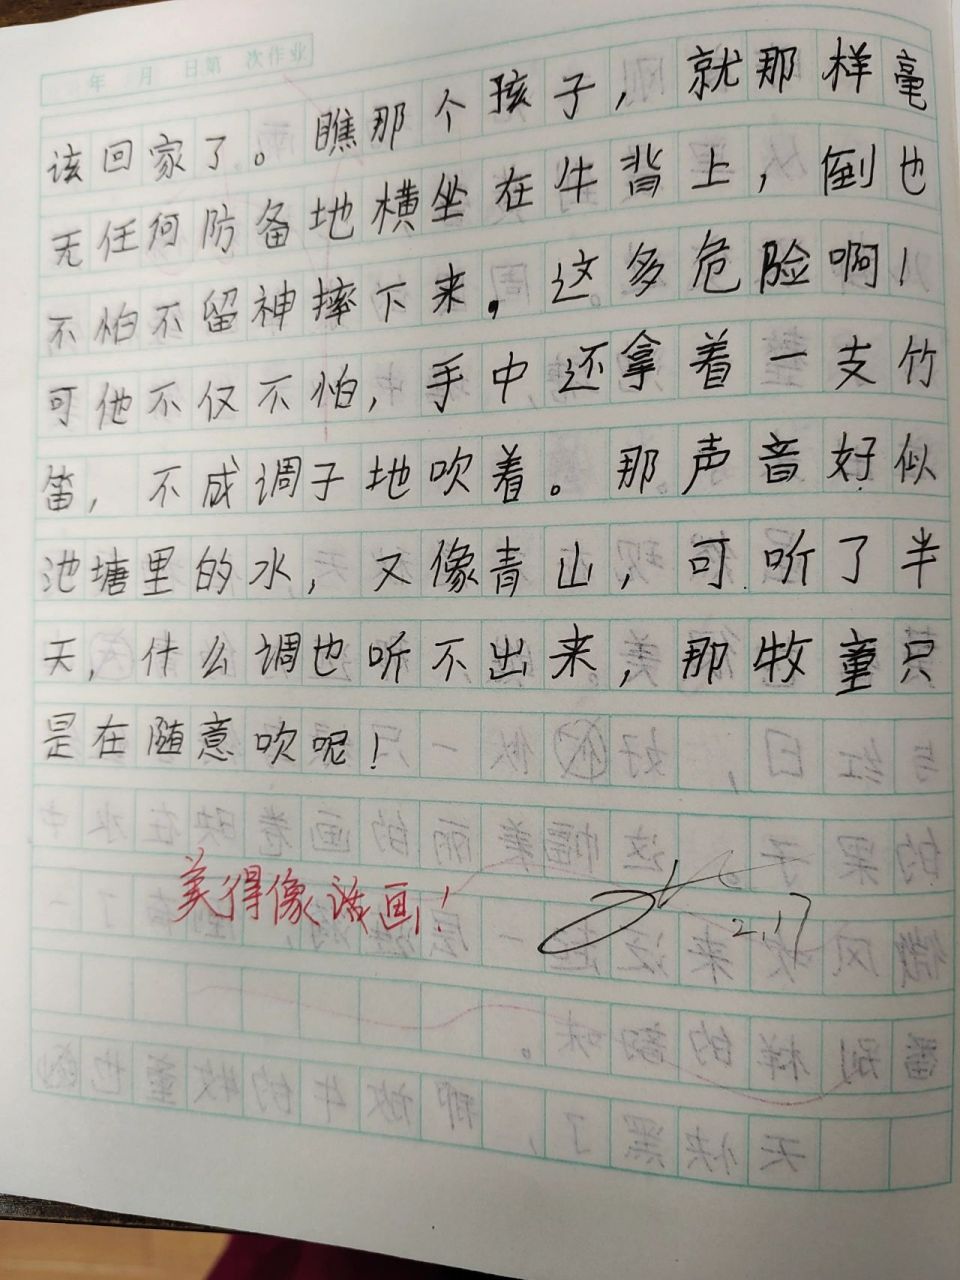 年 月 日第 次作业
该回家了。瞧那个孩子，就那样毫
无任何防备地横坐在牛背上，倒也
不怕不留神摔下来。这多危险啊！
可他不仅不怕，手中还拿着一支竹
笛，不成调子地吹着。那声音好似
池塘里的水，又像青山，可听了半
天，什么调也听不出来，那牧童只
是在随意吹呢！
美得像话画！
2.17